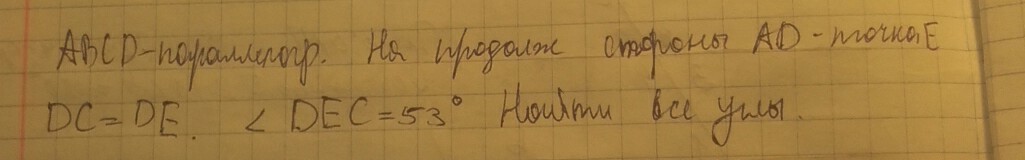 ABCD-параллелогр. На продолж стороны AD - точка E
DC = DE. < DEC = 53° Найти все углы.